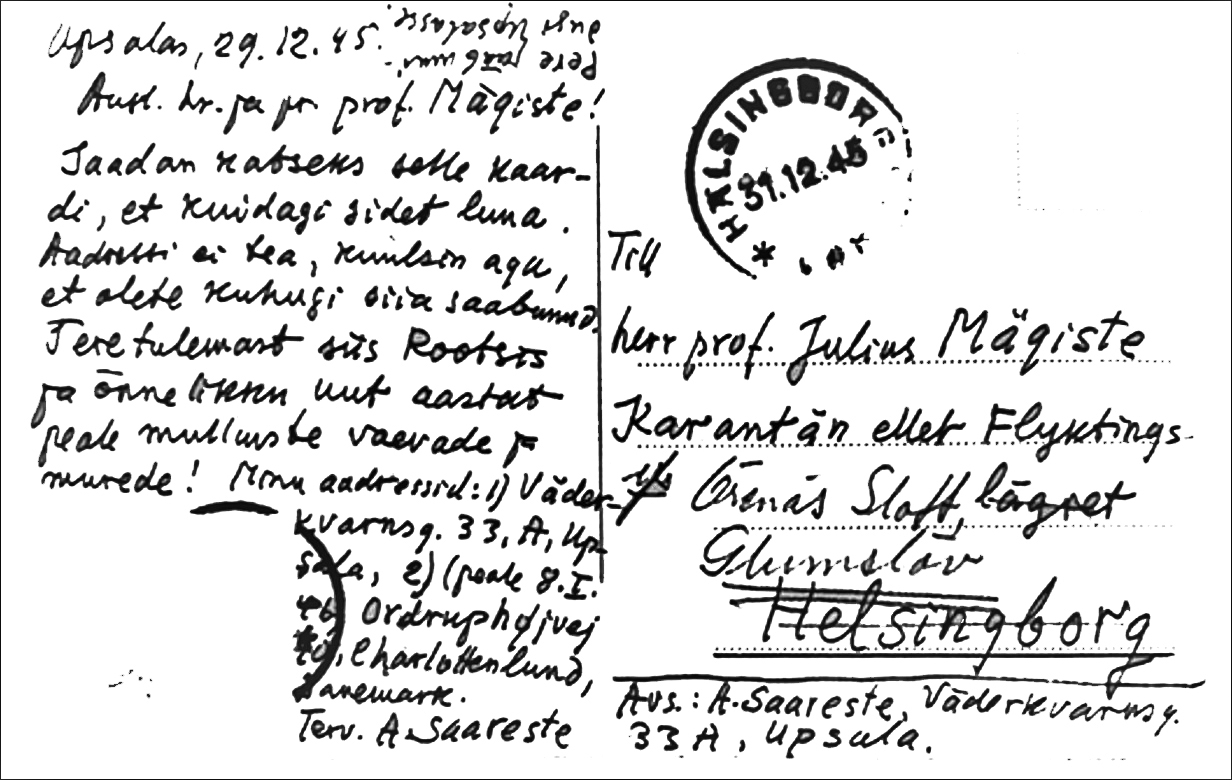 Upsalas, 29.12.45.
Aust. hr. ja pr. prof. Mägiste!
Saadan katseks selle kaar-
di, et kuidagi sidet luua.
Aadressi ei tea, kuulsin aga,
et olete kuhugi siia saabunud.
Tere tulemast siis Rootsis
ja õnnelikku uut aastat
peale mulluste vaevade ja
murede! Minu aadressid: 1) Väder-
kvarnsg. 33, A, Up-
sala, 2) (peale 8.I.
46 Ordruphøjvej
Charlottenlund,
Danemark.
Terv. A. Saareste
Pere
HÄLSINGBORG
31.12.45
Till
herr prof. Julius Mägiste
Karantän ellet Flyktings-
Örenäs Slott, lägret
Glumslöv
Helsingborg
Avs.: A. Saareste, Väderkvarnsg.
33 A, Upsala.